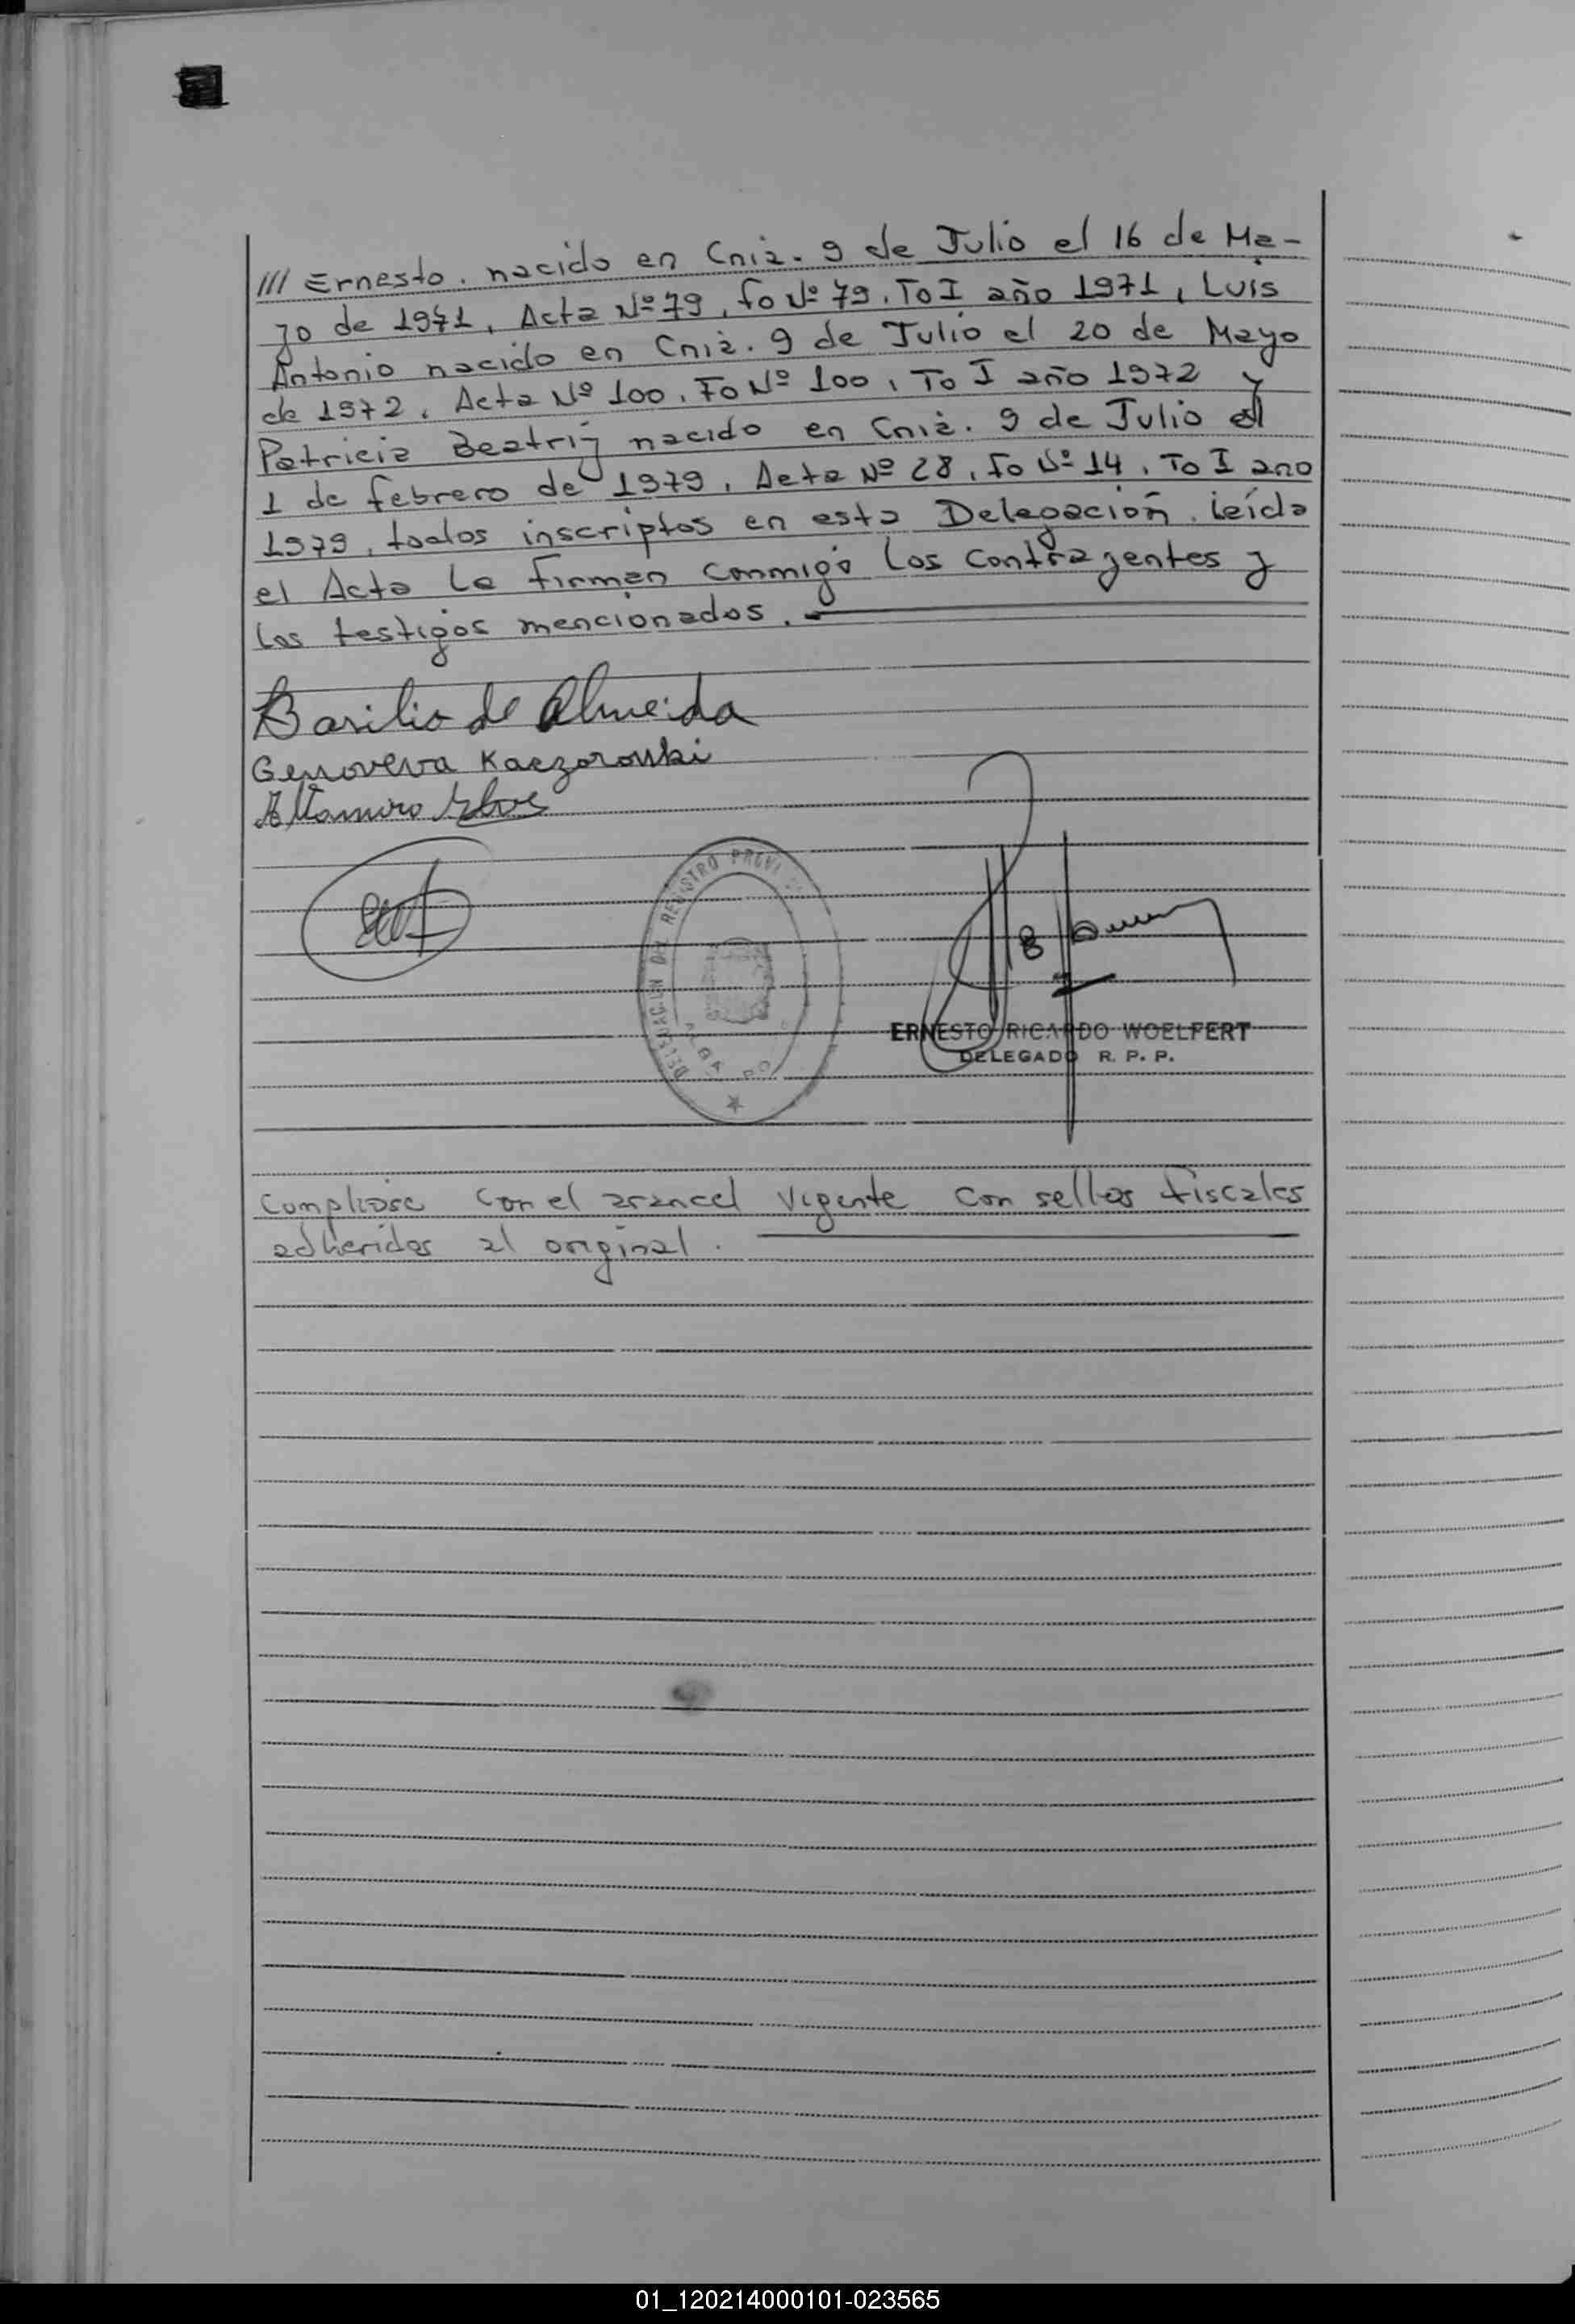 /// Ernesto. nacido en Cnia. 9 de Julio el 16 de Ma-
yo de 1971, Acta Nº 79, Fo Nº 79. To I año 1971, Luis
Antonio nacido en Cnia. 9 de Julio el 20 de Mayo
de 1972, Acta Nº 100, Fo Nº 100, To I año 1972 y
Patricia Beatriz nacido en Cnia. 9 de Julio el
1 de febrero de 1979, Acta Nº 28, Fo Nº 14, To I ano
1979, todos inscriptos en esta Delegación. Leída
el Acta la firman conmigo los contrayentes y
los testigos mencionados.
Basilio de Almeida
Genoveva Kaczorowski
Altamiro
DELEGACION DEL REGISTRO
ERNESTO RICARDO WOELFERT
DELEGADO R. P. P.
Cumpliose con el arancel vigente con sellos fiscales
adheridos al original.
01_120214000101-023565